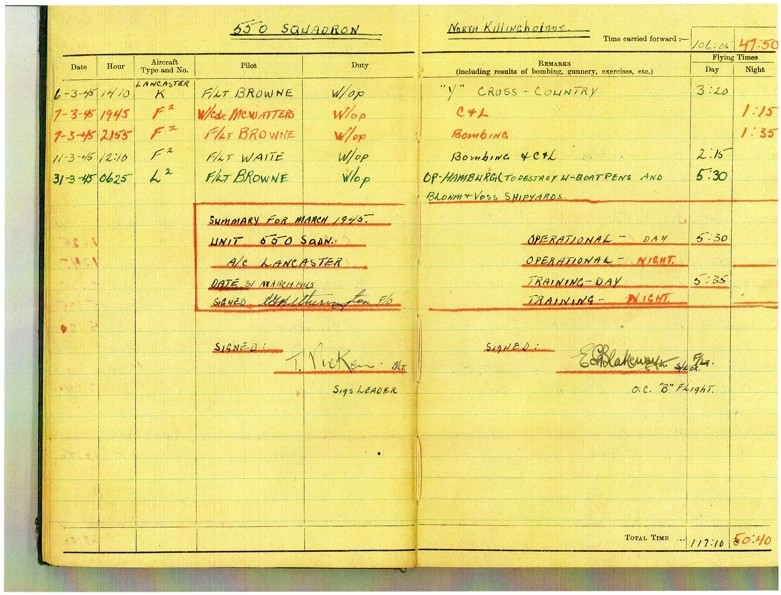 550 SQUADRON
NORTH KILLINGHOLME.
Time carried forward :— 106:06 47:50
Date Hour Aircraft Type and No. Pilot Duty REMARKS (including results of bombing, gunnery, exercises, etc.) Flying Times Day Night
LANCASTER
6-3-45 1410 K F/LT BROWNE W/OP "Y" CROSS-COUNTRY 3:20
7-3-45 1945 F² W/Cdr. McWATTERS W/op C&L 1:15
7-3-45 2155 F² F/LT BROWNE W/op BOMBING 1:35
11-3-45 12:10 F² F/LT WAITE W/op BOMBING & C&L 2:15
31-3-45 0625 L² F/LT BROWNE W/op OP-HAMBURG (TO DESTROY U-BOAT PENS AND 5:30
BLOHM & VOSS SHIPYARDS.
SUMMARY FOR MARCH 1945.
UNIT 550 SQDN. OPERATIONAL - DAY 5:30
A/C LANCASTER OPERATIONAL - NIGHT.
DATE 31 MARCH 1945 TRAINING-DAY 5:35
SIGNED F/O TRAINING- NIGHT
SIGNED: T. Picken. F/LT. SIGNED: F/LT.
SIGS LEADER O.C. "B" FLIGHT.
TOTAL TIME ... 117:10 50:40